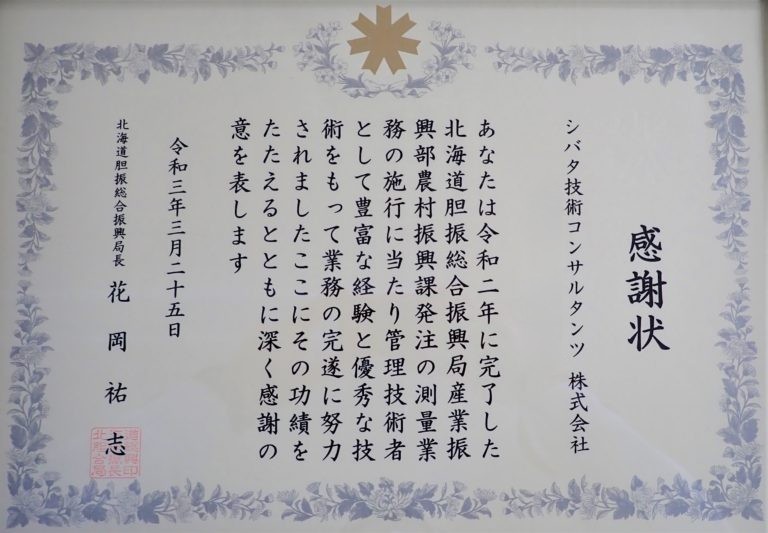 感謝状
シバタ技術コンサルタンツ 株式会社
あなたは令和二年に完了した
北海道胆振総合振興局産業振
興部農村振興課発注の測量業
務の施行に当たり管理技術者
として豊富な経験と優秀な技
術をもって業務の完遂に努力
されましたここにその功績を
たたえるとともに深く感謝の
意を表します
令和三年三月二十五日
北海道胆振総合振興局長 花岡祐志